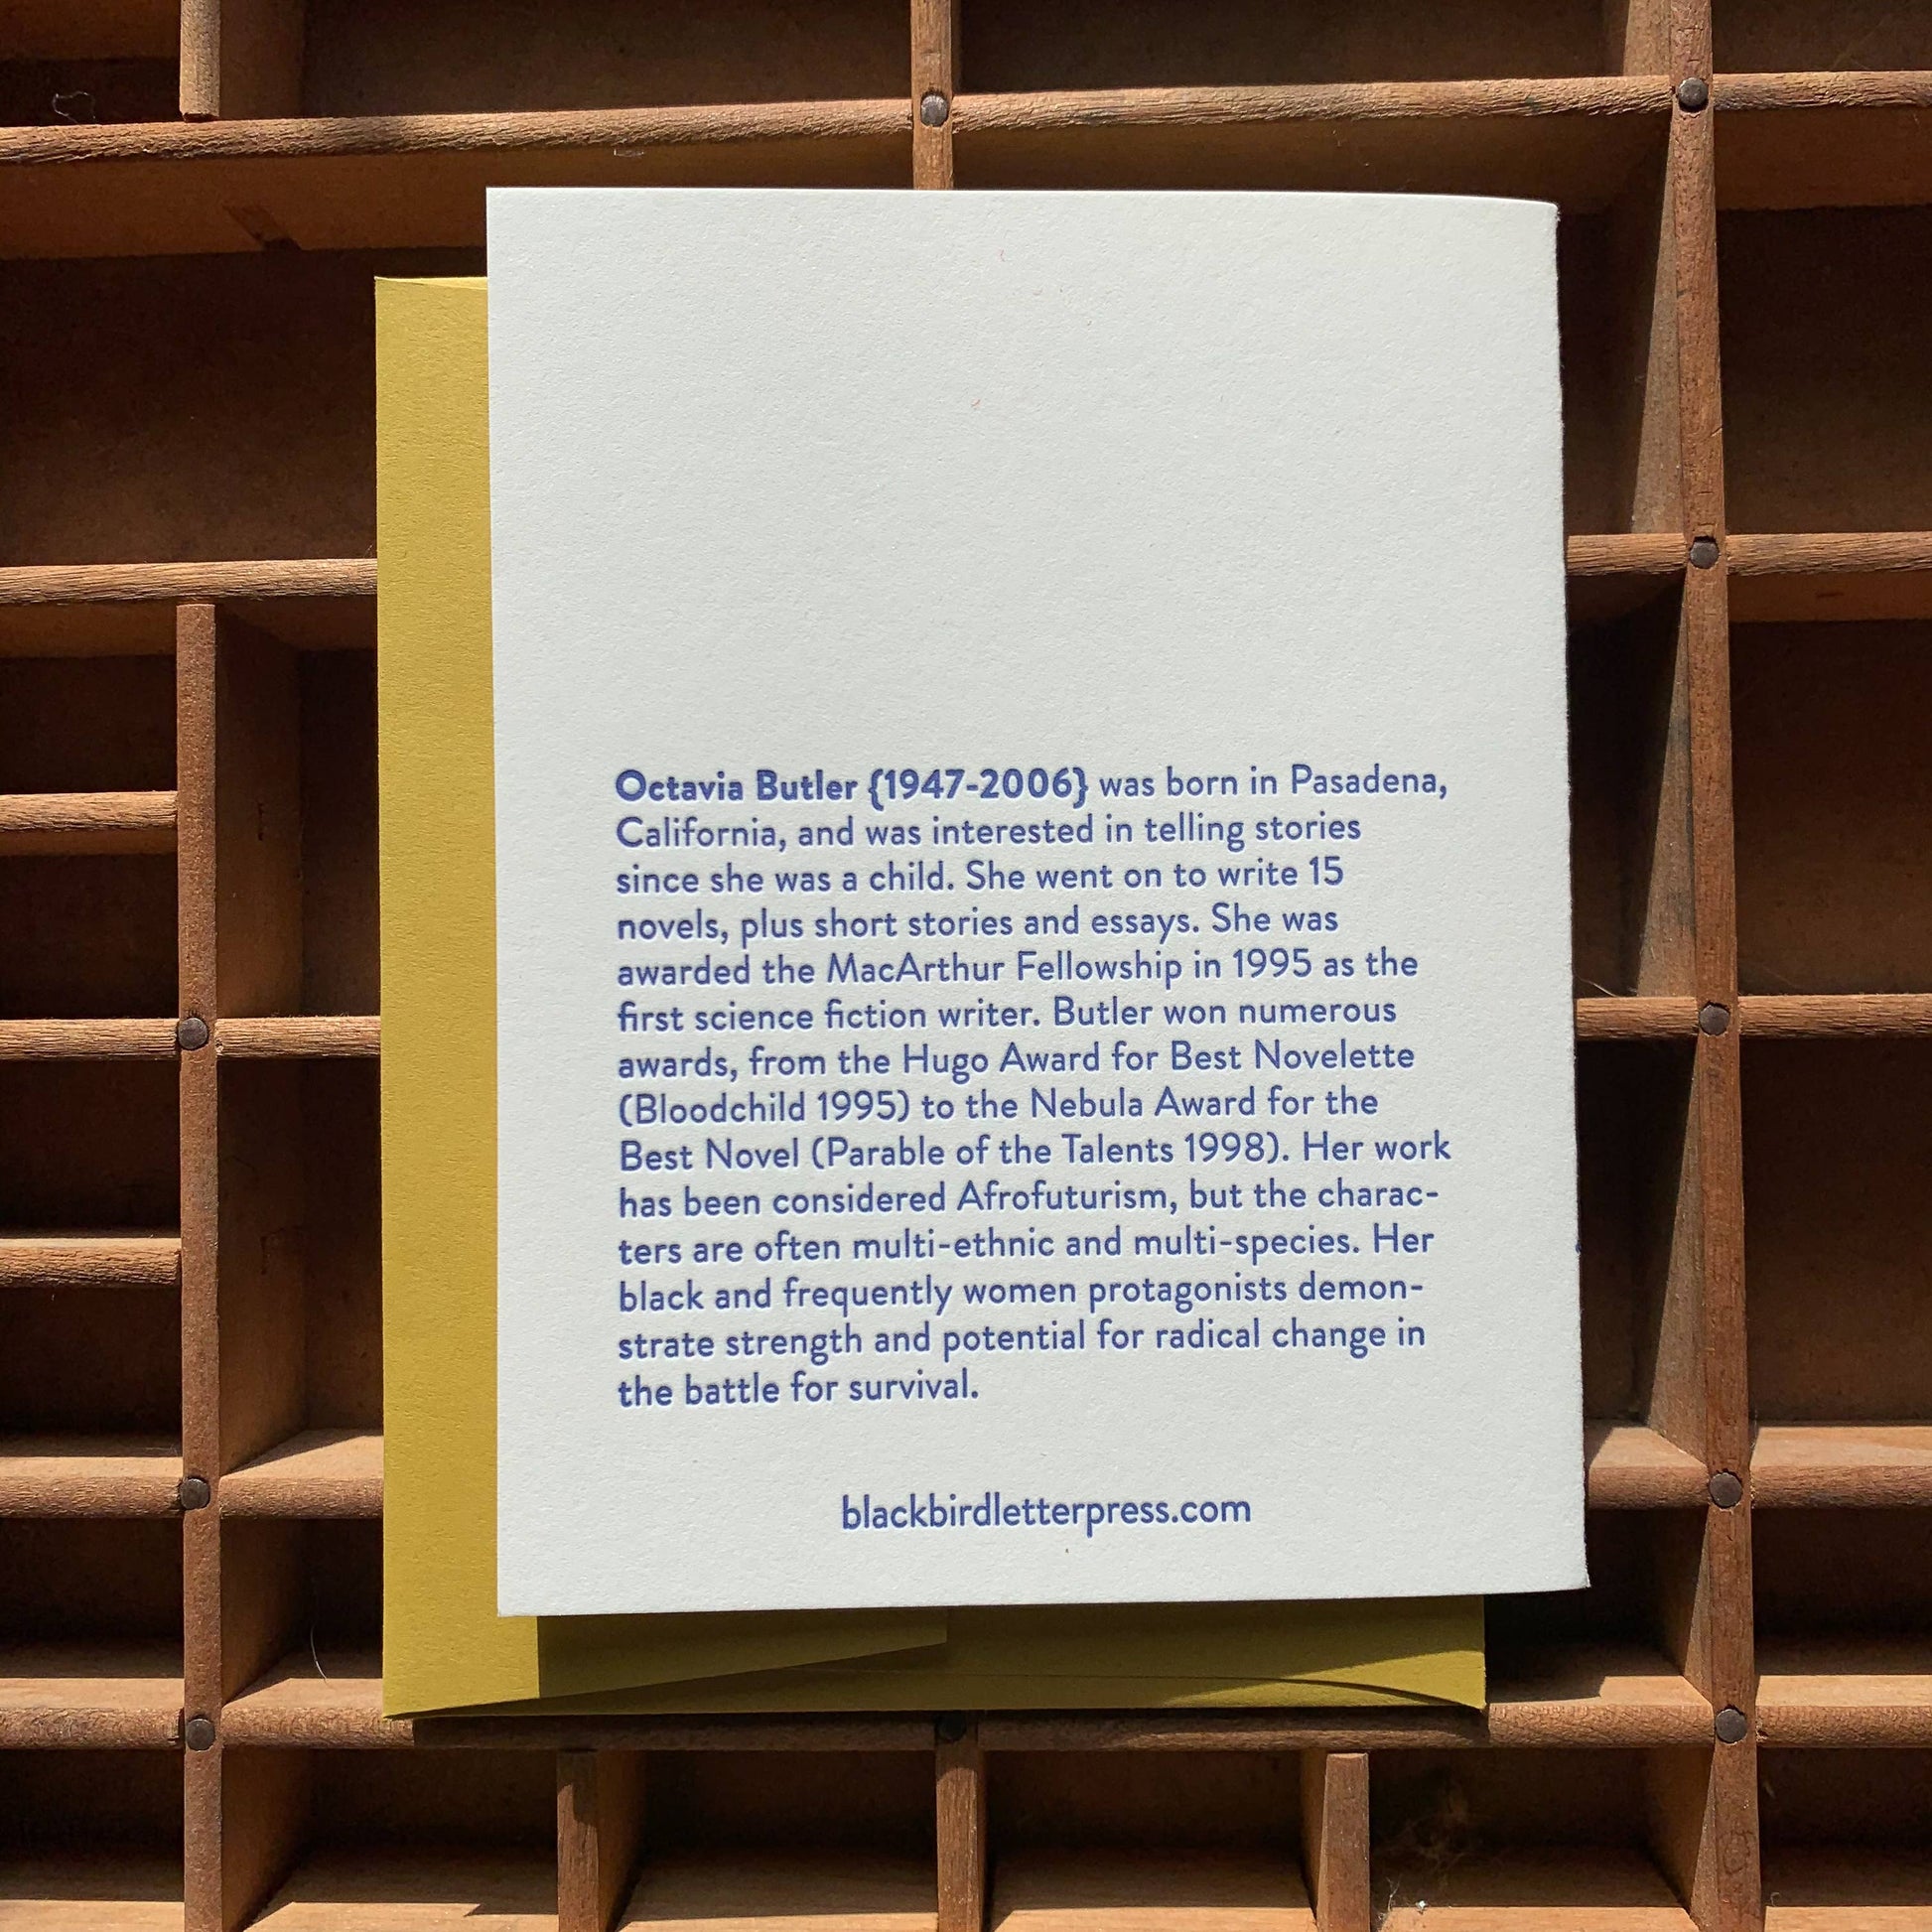 Octavia Butler {1947-2006} was born in Pasadena,
California, and was interested in telling stories
since she was a child. She went on to write 15
novels, plus short stories and essays. She was
awarded the MacArthur Fellowship in 1995 as the
first science fiction writer. Butler won numerous
awards, from the Hugo Award for Best Novelette
(Bloodchild 1995) to the Nebula Award for the
Best Novel (Parable of the Talents 1998). Her work
has been considered Afrofuturism, but the charac-
ters are often multi-ethnic and multi-species. Her
black and frequently women protagonists demon-
strate strength and potential for radical change in
the battle for survival.
blackbirdletterpress.com